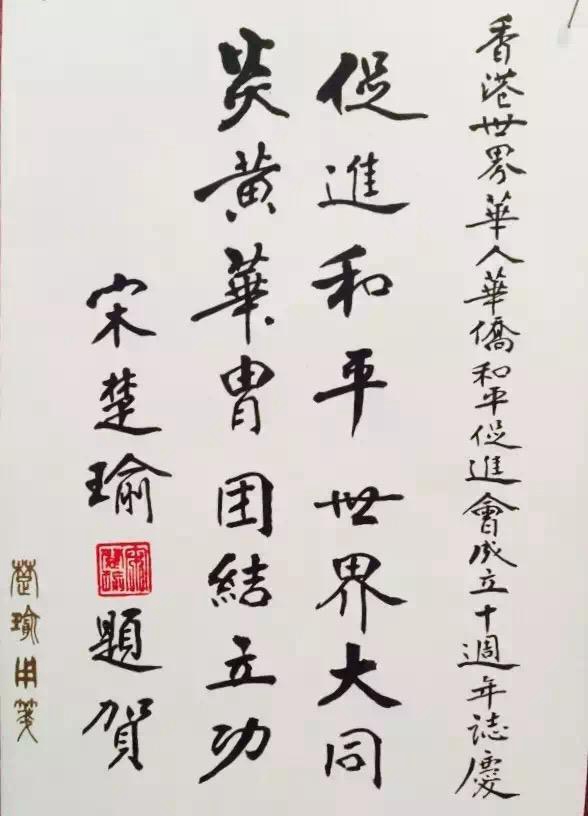 香港世界華人華僑和平促進會成立十週年誌慶
促進和平世界大同
炎黃華胄团結立功
宋楚瑜題賀
楚瑜用箋